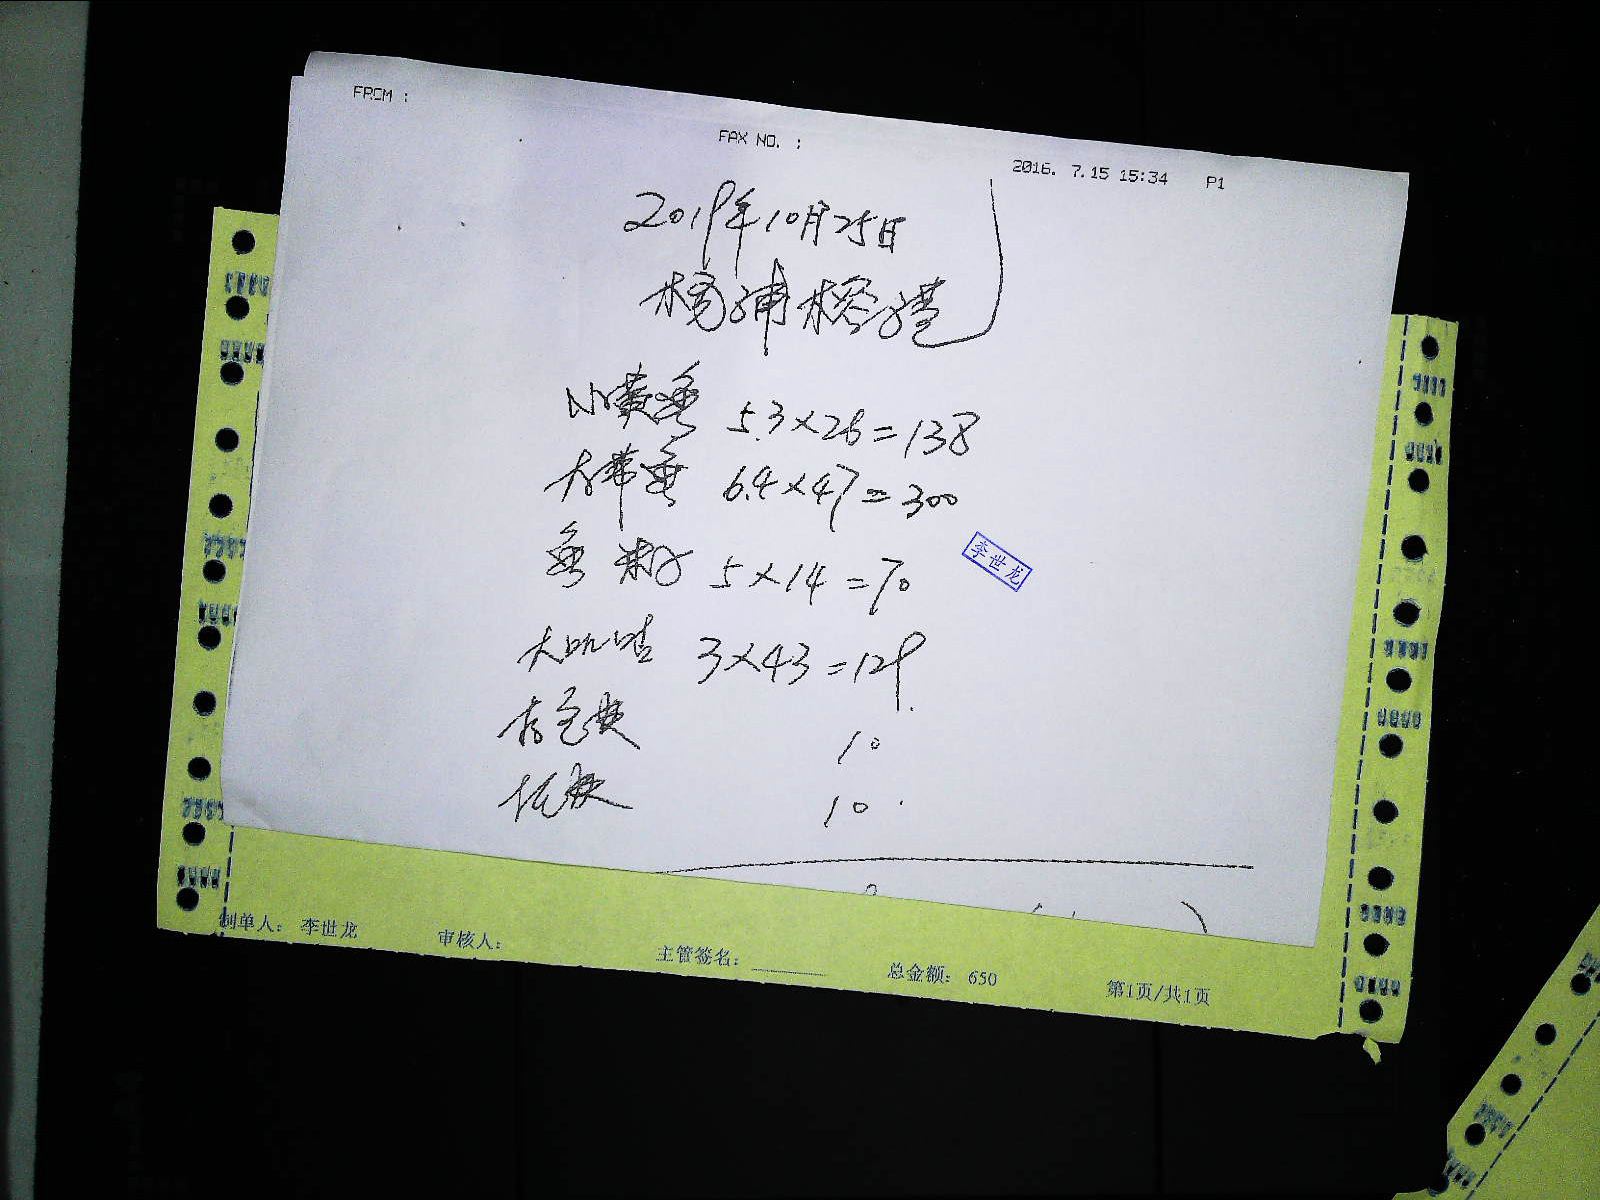 FROM :
FAX NO. :
2016. 7.15 15:34 P1
2019年10月25日
杨浦榕港
小黄鱼 5.3×26=138
大带鱼 6.4×47=300
李世龙
鱼 5×14=70
大 3×43=129.
10
10.
制单人: 李世龙 审核人: 主管签名: 总金额: 650 第1页/共1页